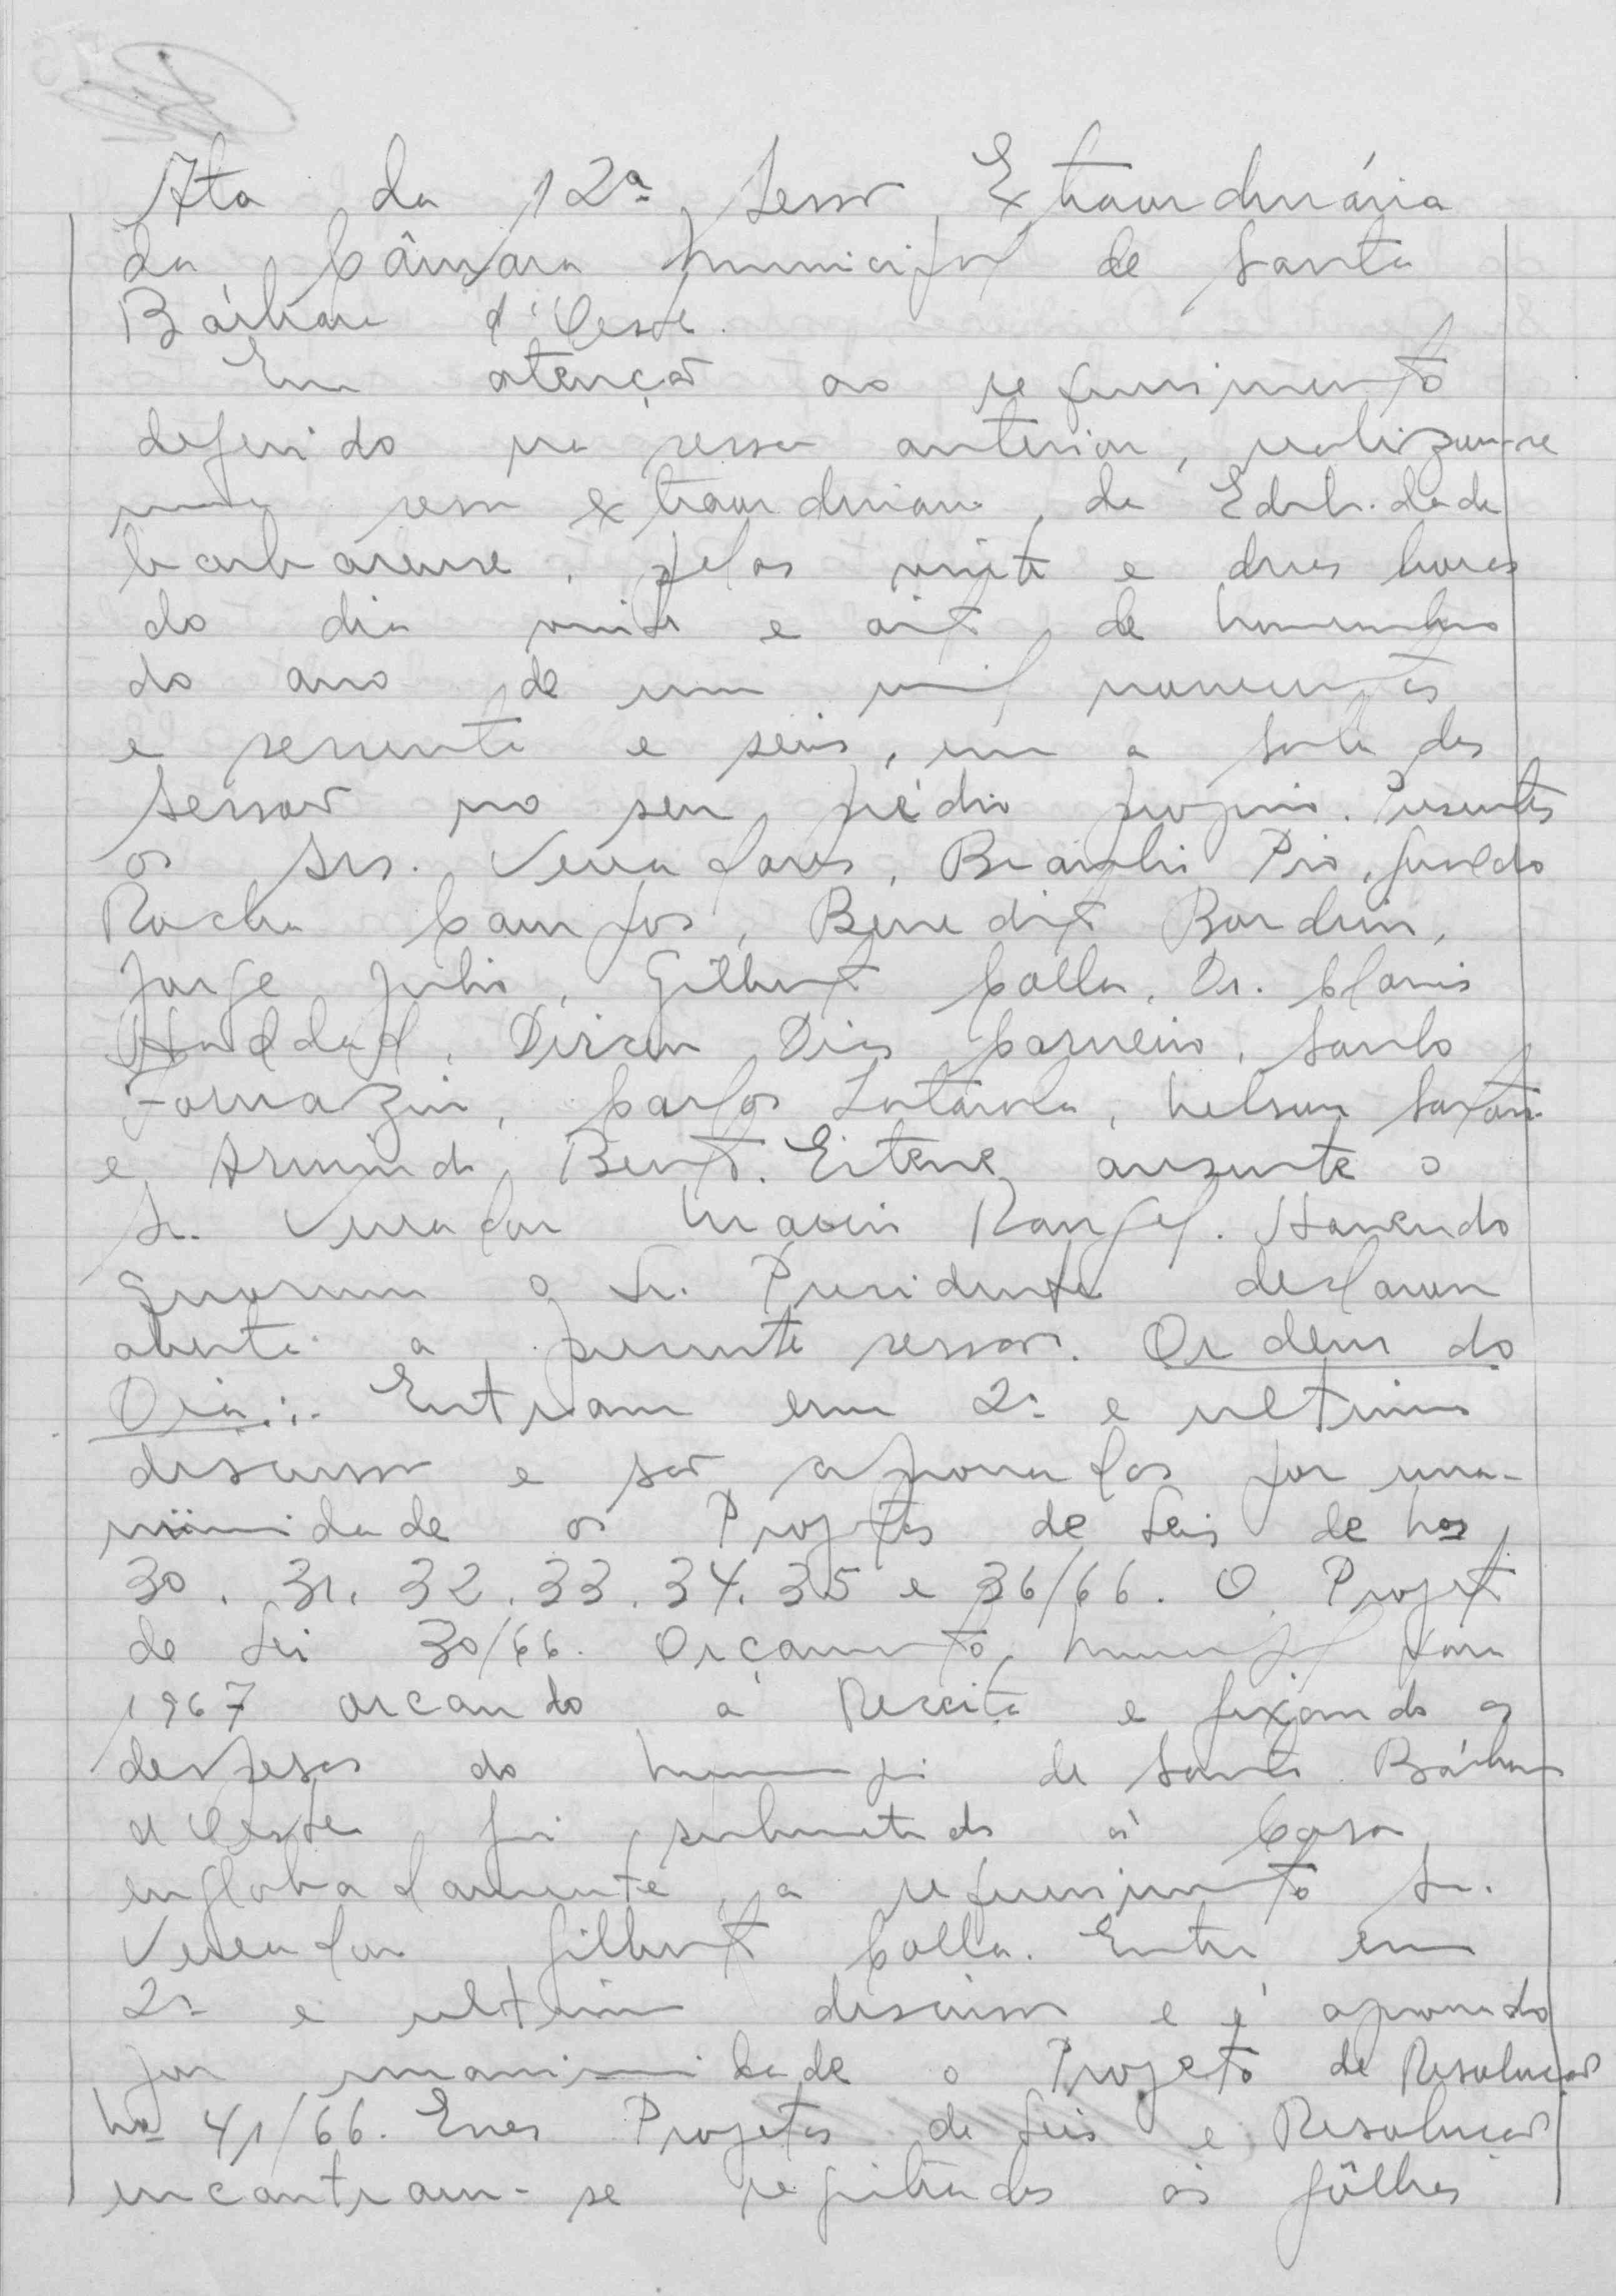 Ata da 12ª Sessão Extraordinária
da Câmara Municipal de Santa
Bárbara d'Oeste.
Em atenção ao requerimento
deferido na sessão anterior, realizou-se
uma sessão extraordinária da Edilidade
barbarense, pelas vinte e duas horas
do dia vinte e oito de novembro
do ano de um mil novecentos
e sessenta e seis, em a sala das
sessões no seu prédio próprio. Presentes
os Srs. Vereadores, Braulio Pio,
Rocha Campos, Benedito Bordin,
Jorge Julio, Gilberto Colla, Dr.
Haddad, Dirceu Dias Carneiro,
Fornazin, Carlos, Nelson
e Armindo Bento. Esteve ausente o
Sr. Vereador Rangel. Havendo
quorum o Sr. Presidente declarou
aberta a presente sessão. Ordem do
Dia:- Entram em 2ª e ultima
discussão e são aprovados por una-
nimidade os Projetos de Leis de nos
30. 31. 32. 33. 34. 35 e 36/66. O Projeto
de Lei 30/66. Orçamento Municipal para
1967 orçando a Receita e fixando as
despesas do Municipio de Santa Bárbara
d'Oeste foi submetido à Casa
englobadamente, a requerimento Sr.
Vereador Gilberto Colla. Entra em
2ª e ultima discussão e é aprovado
por unanimidade o Projeto de Resolução
nº 41/66. Esses Projetos de Leis e Resolução
encontram-se registrados às fôlhas